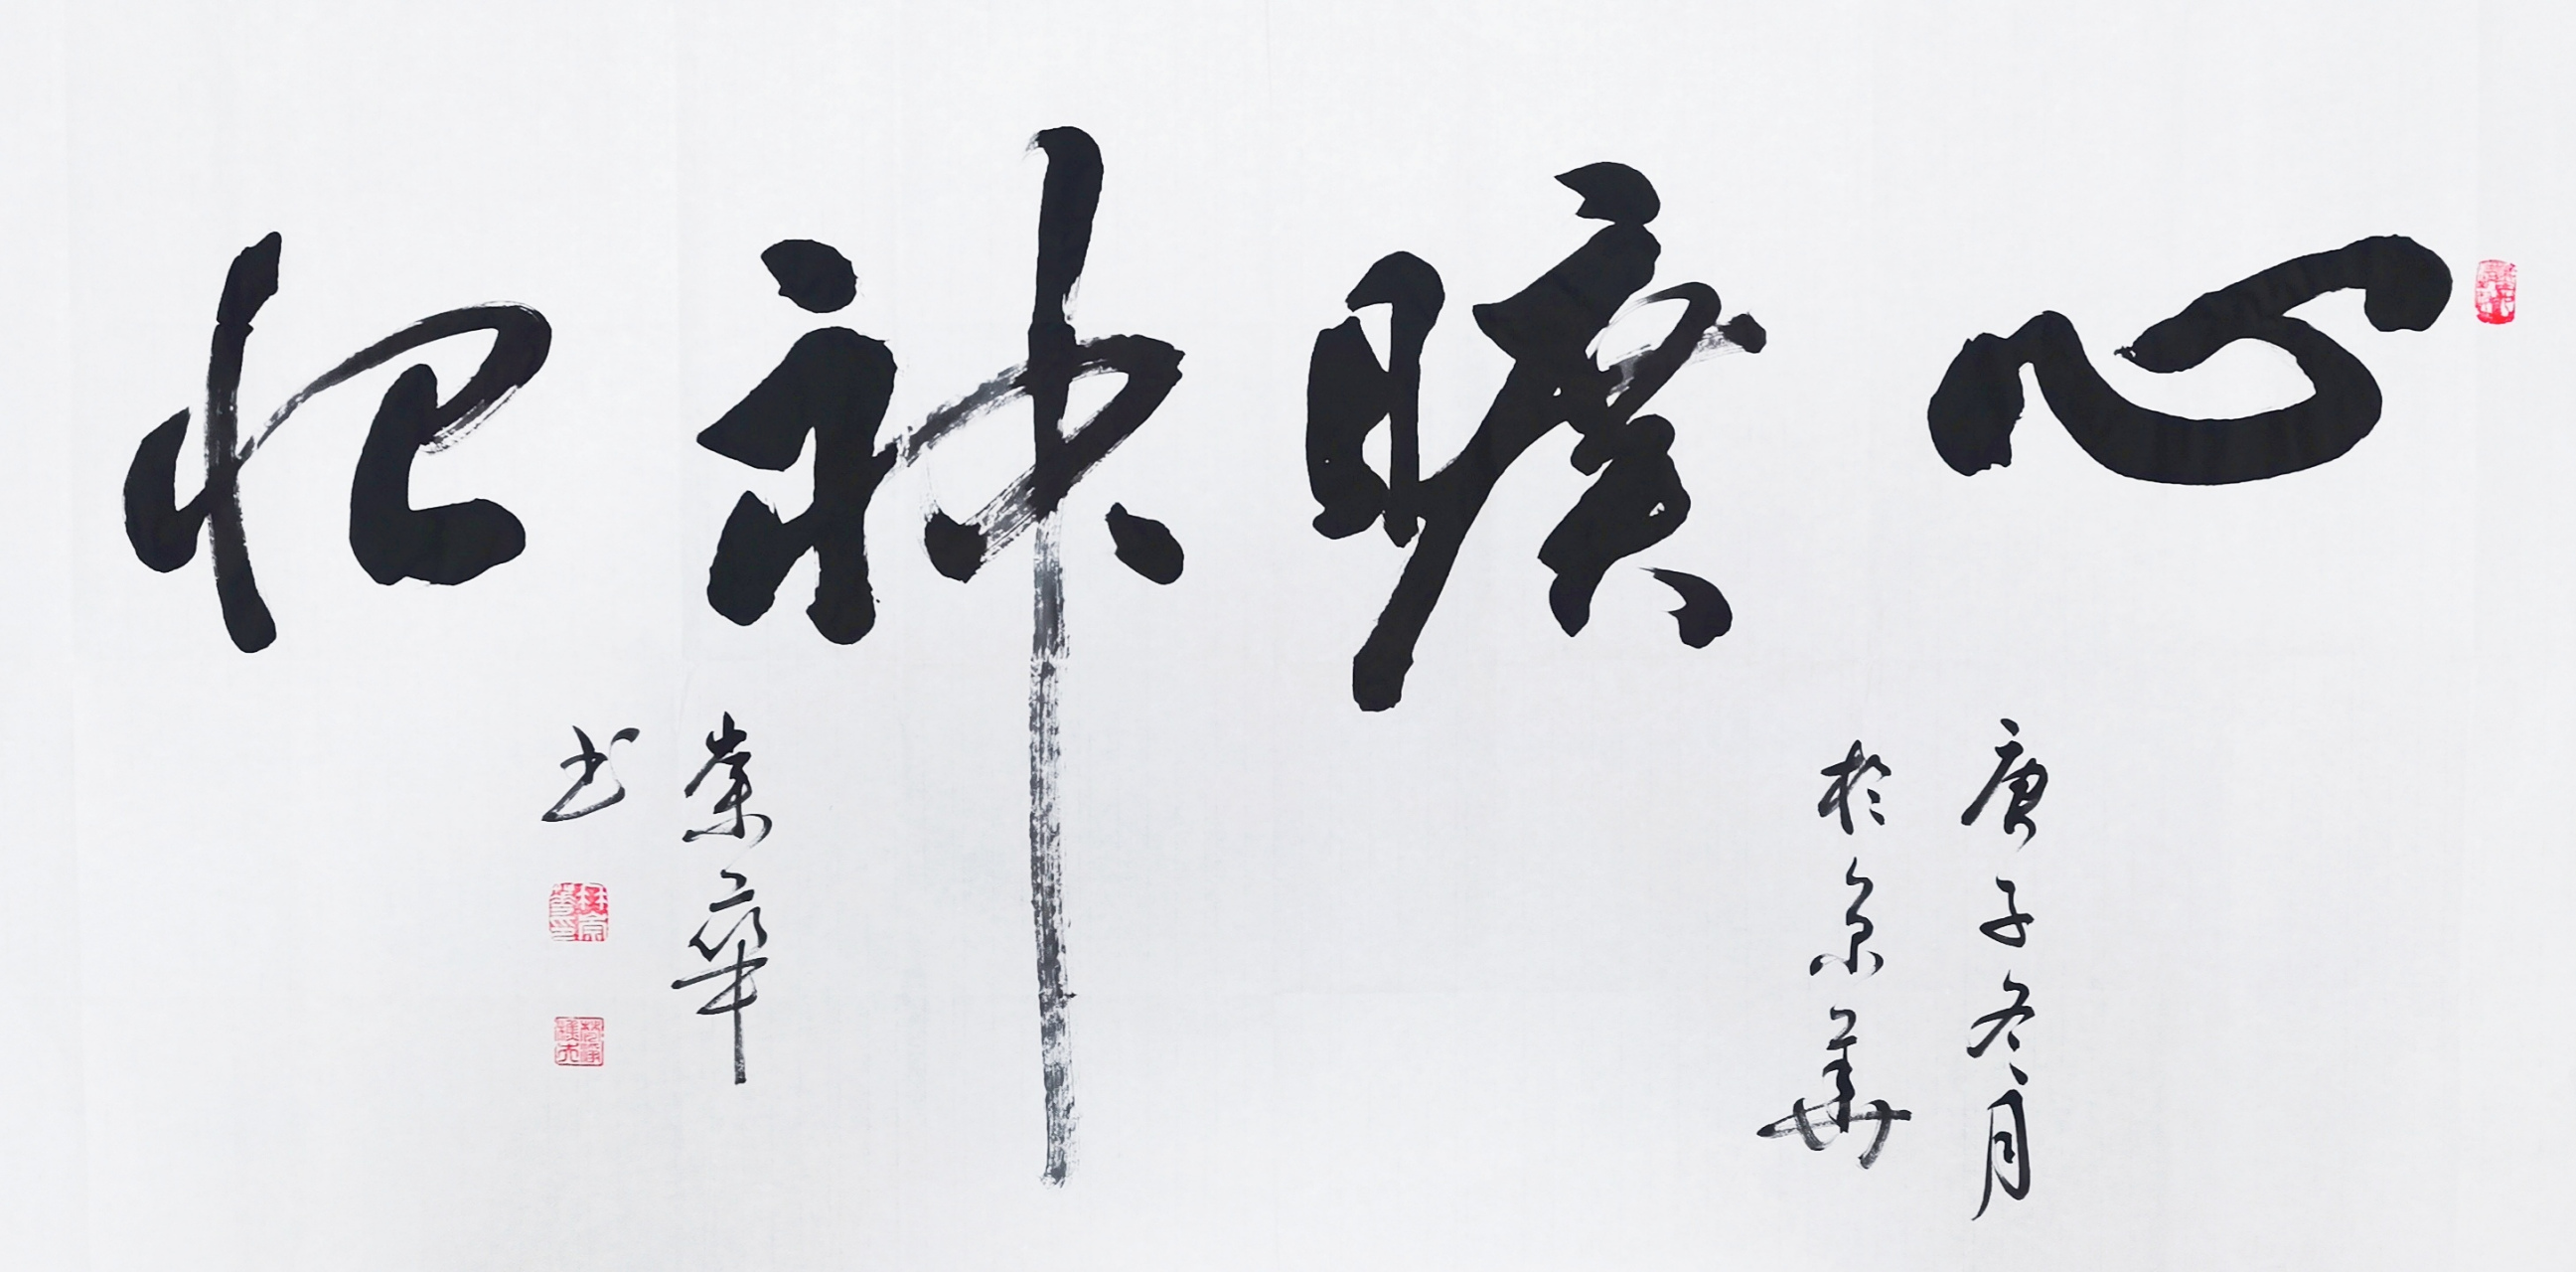 心曠神怡
庚子冬月
於京華
崇華
书